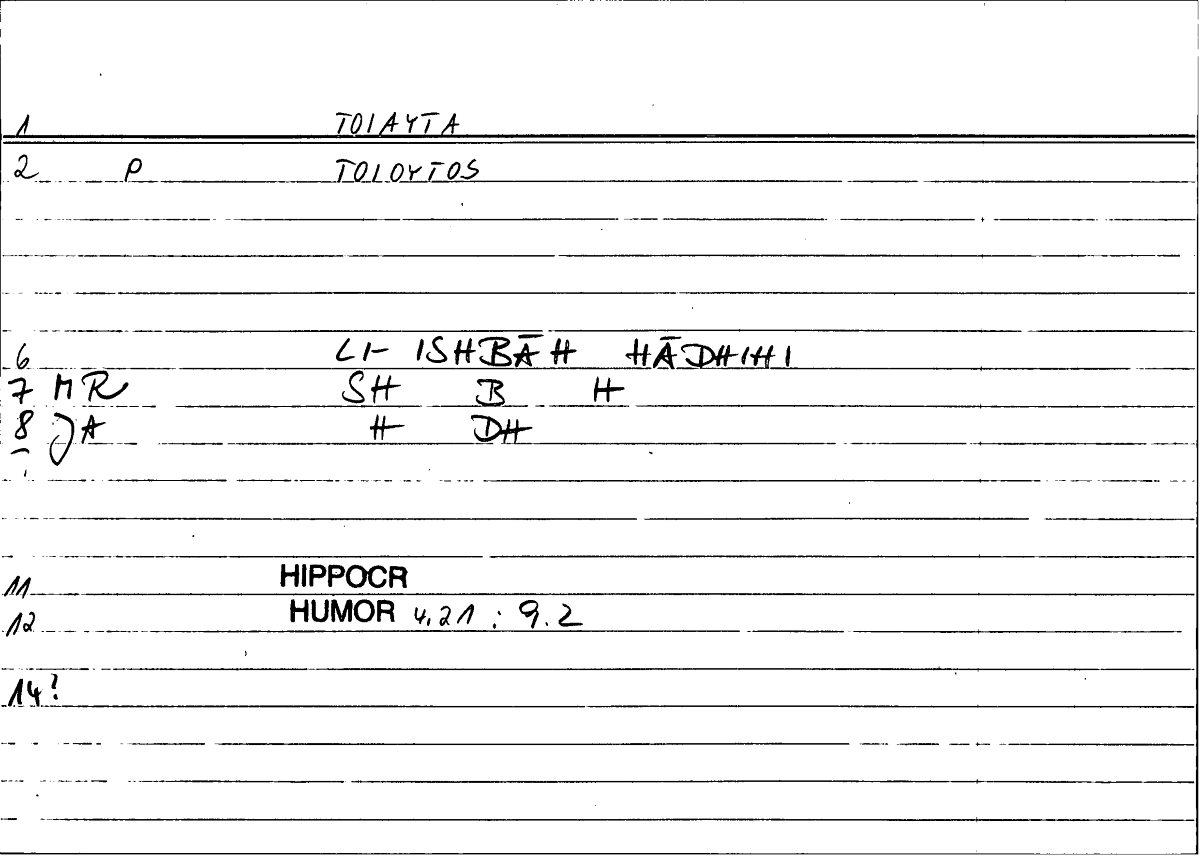 1 TOIAYTA
2 P TOIOYTOS
6 LI- ISHBĀH HĀDHIHI
7 MR SH B H
8 JA H DH
11 HIPPOCR
12 HUMOR 4,21 : 9.2
14?